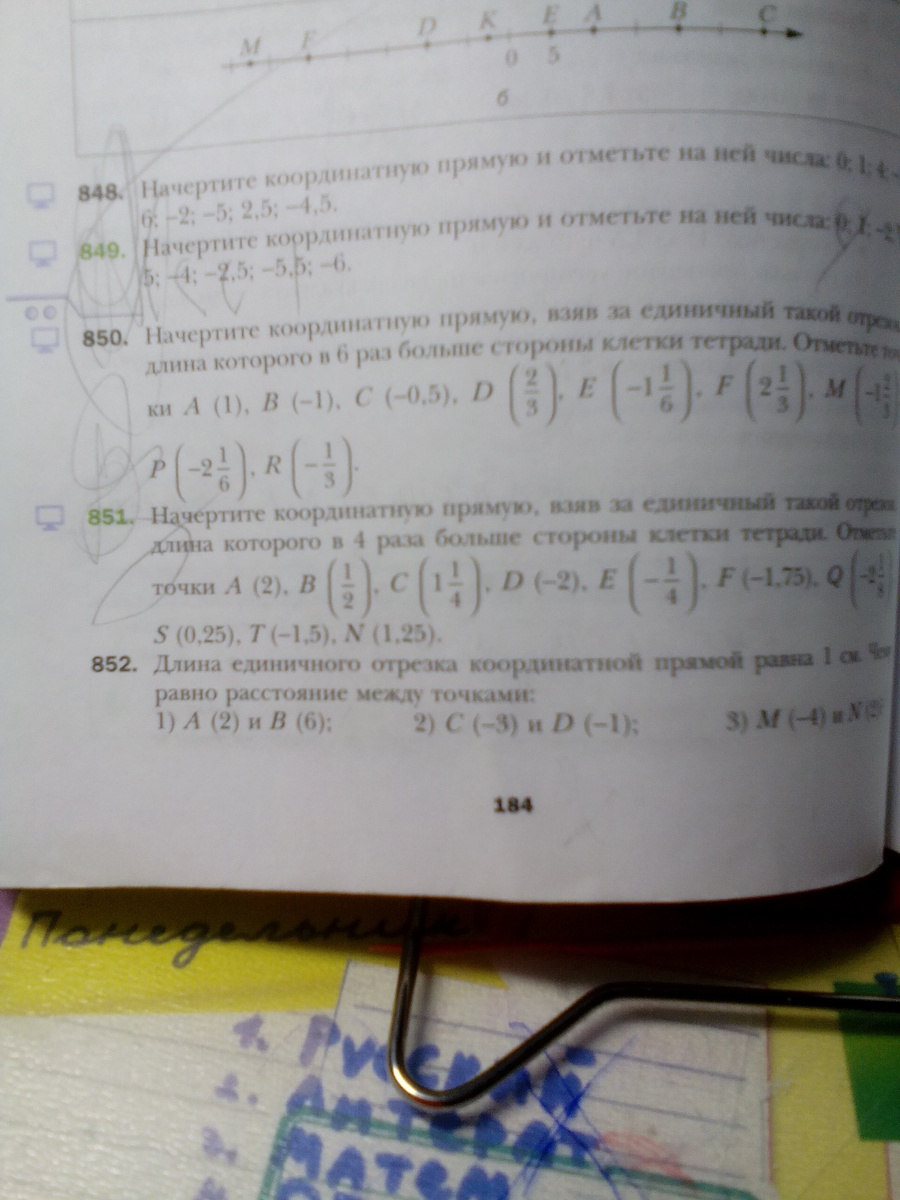 M F D K E A B C
0 5
б
848. Начертите координатную прямую и отметьте на ней числа: 0; 1; 4;
6; −2; −5; 2,5; −4,5.
849. Начертите координатную прямую и отметьте на ней числа: 0; 1; −2;
5; −4; −2,5; −5,5; −6.
850. Начертите координатную прямую, взяв за единичный такой отрезок,
длина которого в 6 раз больше стороны клетки тетради. Отметьте точ-
ки A (1), B (−1), C (−0,5), D (2/3), E (−1 1/6), F (2 1/3), M (−1 2/3)
P (−2 1/6), R (−1/3).
851. Начертите координатную прямую, взяв за единичный такой отрезок,
длина которого в 4 раза больше стороны клетки тетради. Отметьте
точки A (2), B (1/2), C (1 1/4), D (−2), E (−1/4), F (−1,75), Q
S (0,25), T (−1,5), N (1,25).
852. Длина единичного отрезка координатной прямой равна 1 см. Чему
равно расстояние между точками:
1) A (2) и B (6); 2) C (−3) и D (−1); 3) M (−4) и N (2)
184
Понедельник
1. Русский
2. Литерат
3. Матем